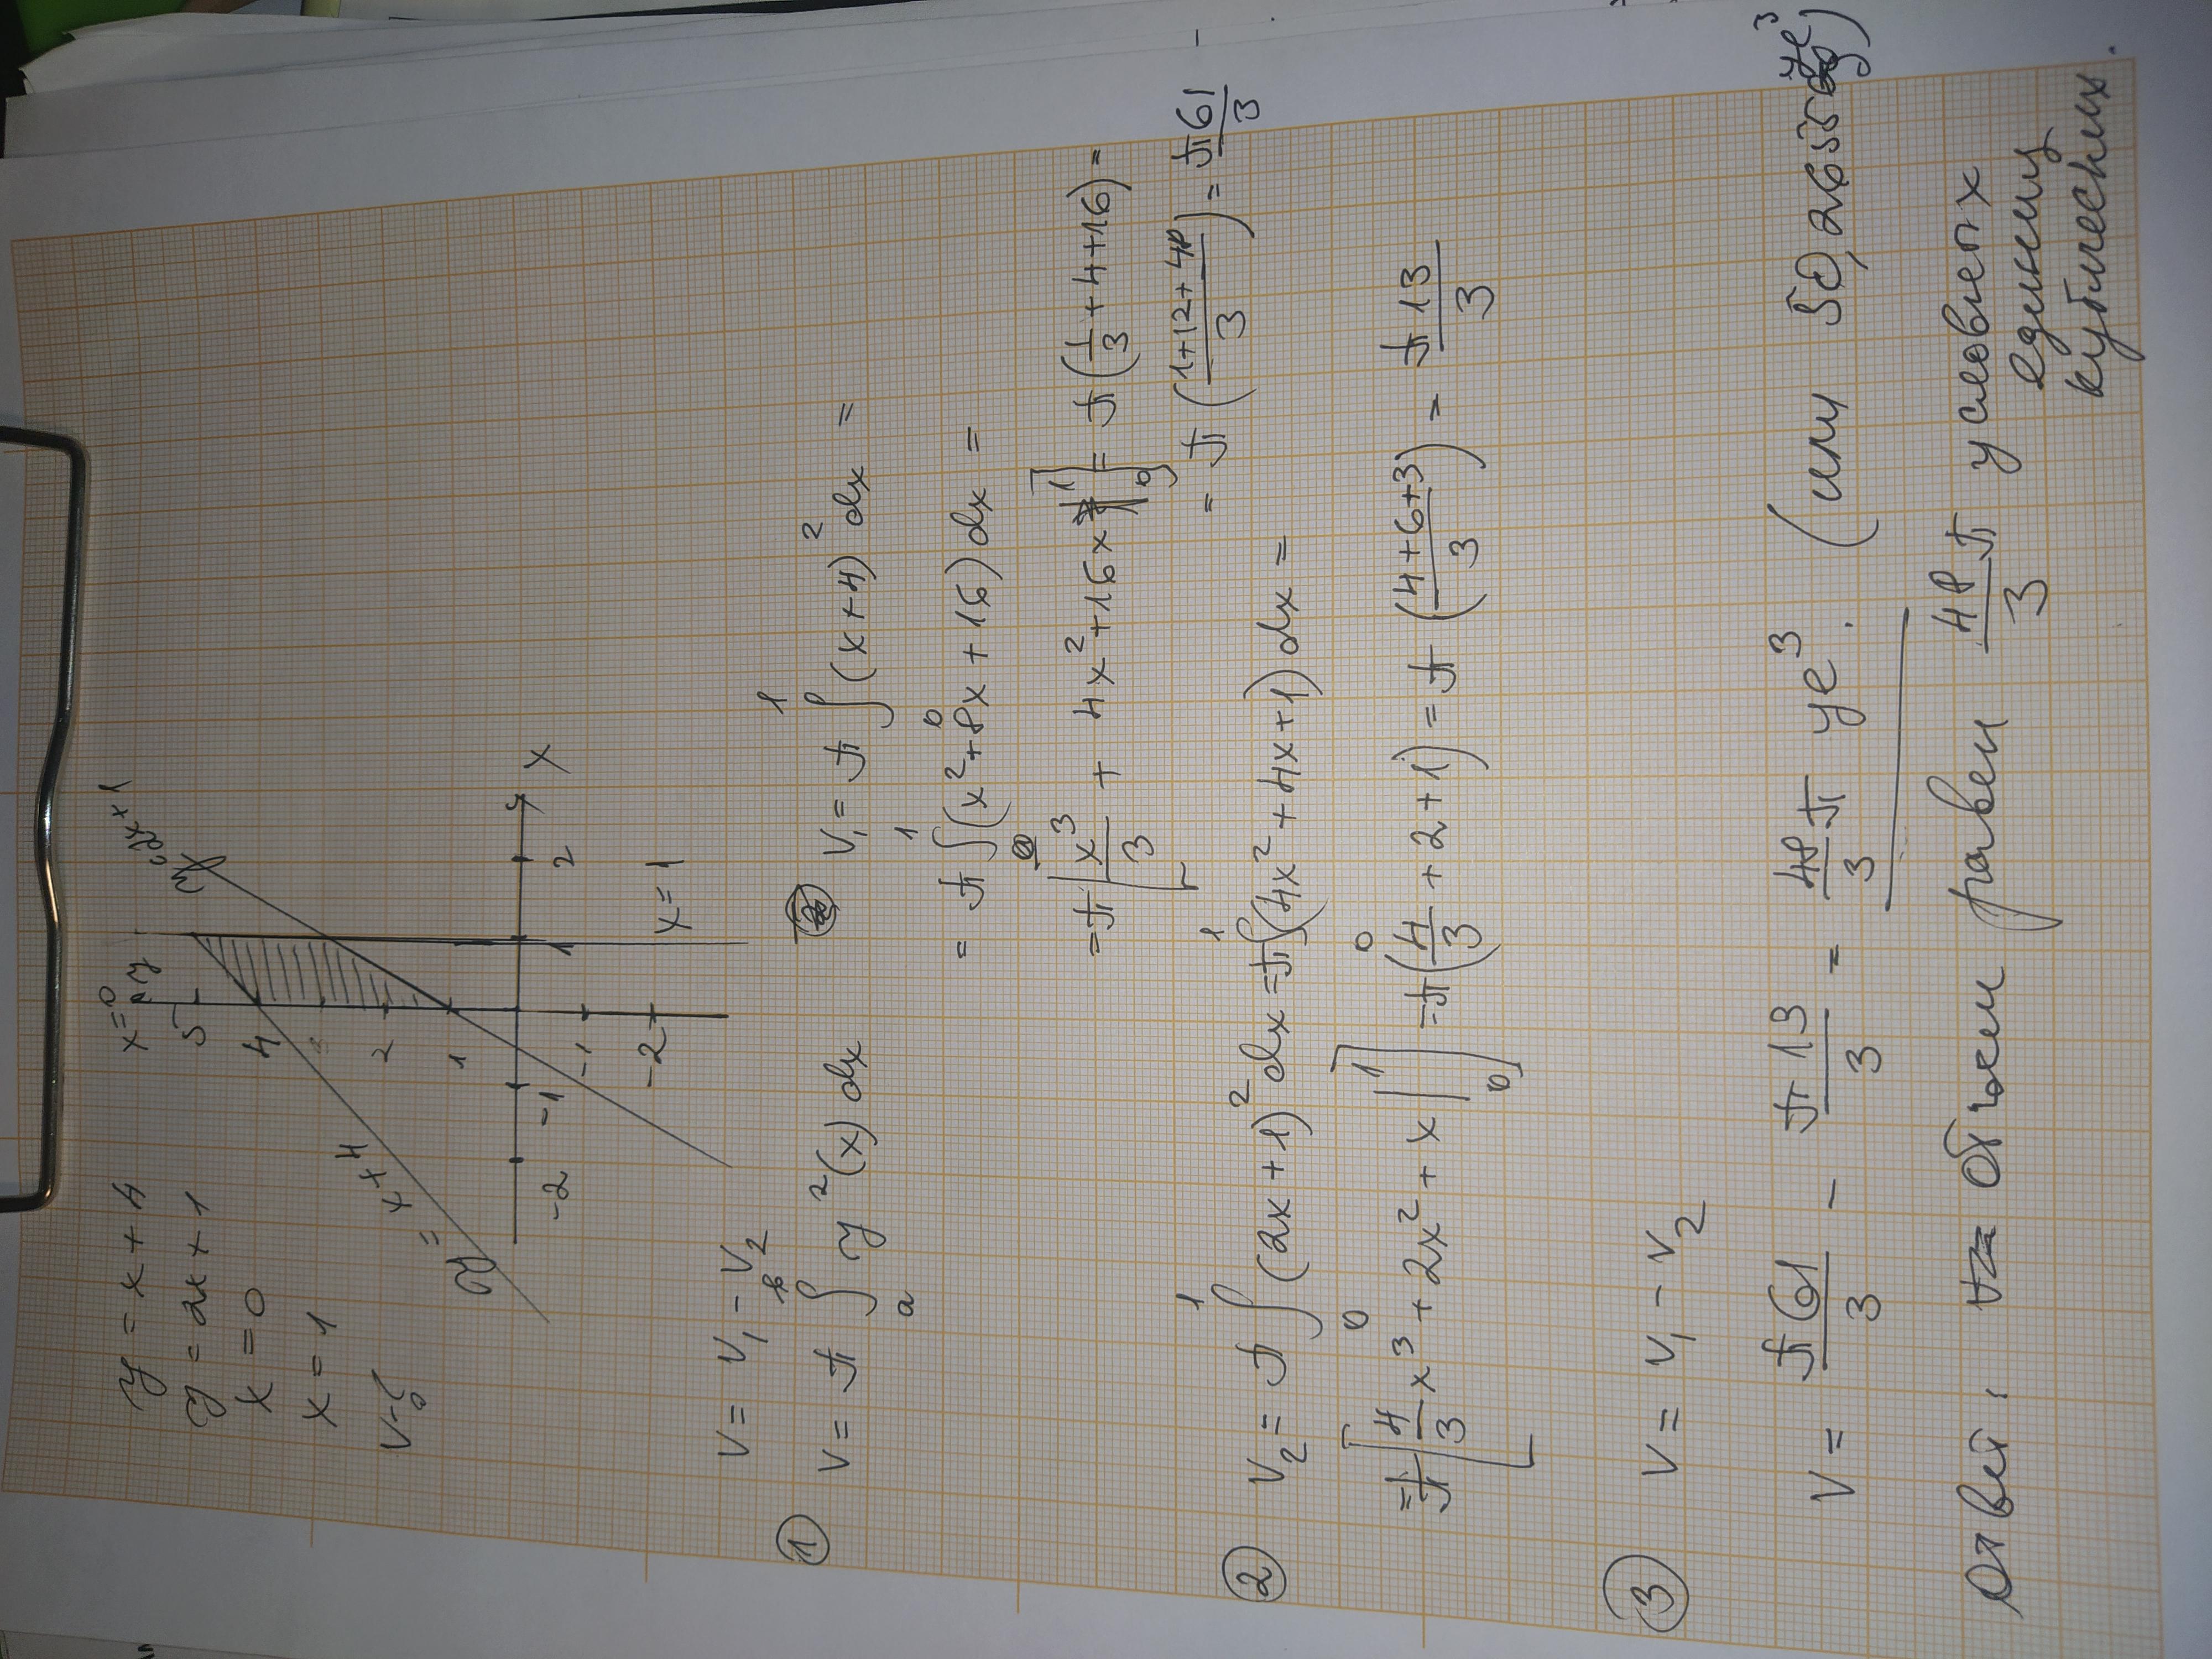 y = x + 4
y = 2x + 1
x = 0
x = 1
V-?
x=0
y
y=2x+1
y = x+4
5
4
2
1
-1
-2
-2
-1
1
2
x
x=1
V = V₁ - V₂
① V = π ∫ₐᵇ y²(x) dx V₁ = π ∫₀¹ (x+4)² dx =
= π ∫₀¹ (x²+8x+16) dx =
= π [x³/3 + 4x²+16x]|₀¹ = π (1/3+4+16) =
= π ((1+12+48)/3) = π61/3
② V₂ = π ∫₀¹ (2x+1)² dx = π∫₀¹(4x²+4x+1) dx =
= π [4/3 x³ + 2x² + x]|₀¹ = π(4/3 + 2 + 1) = π ((4+6+3)/3) = π13/3
③ V = V₁ - V₂
V = π61/3 - π13/3 = 48/3 π уе³. (или 50,2655 уе³)
Ответ: объем равен 48/3 π условных
единиц
кубических.